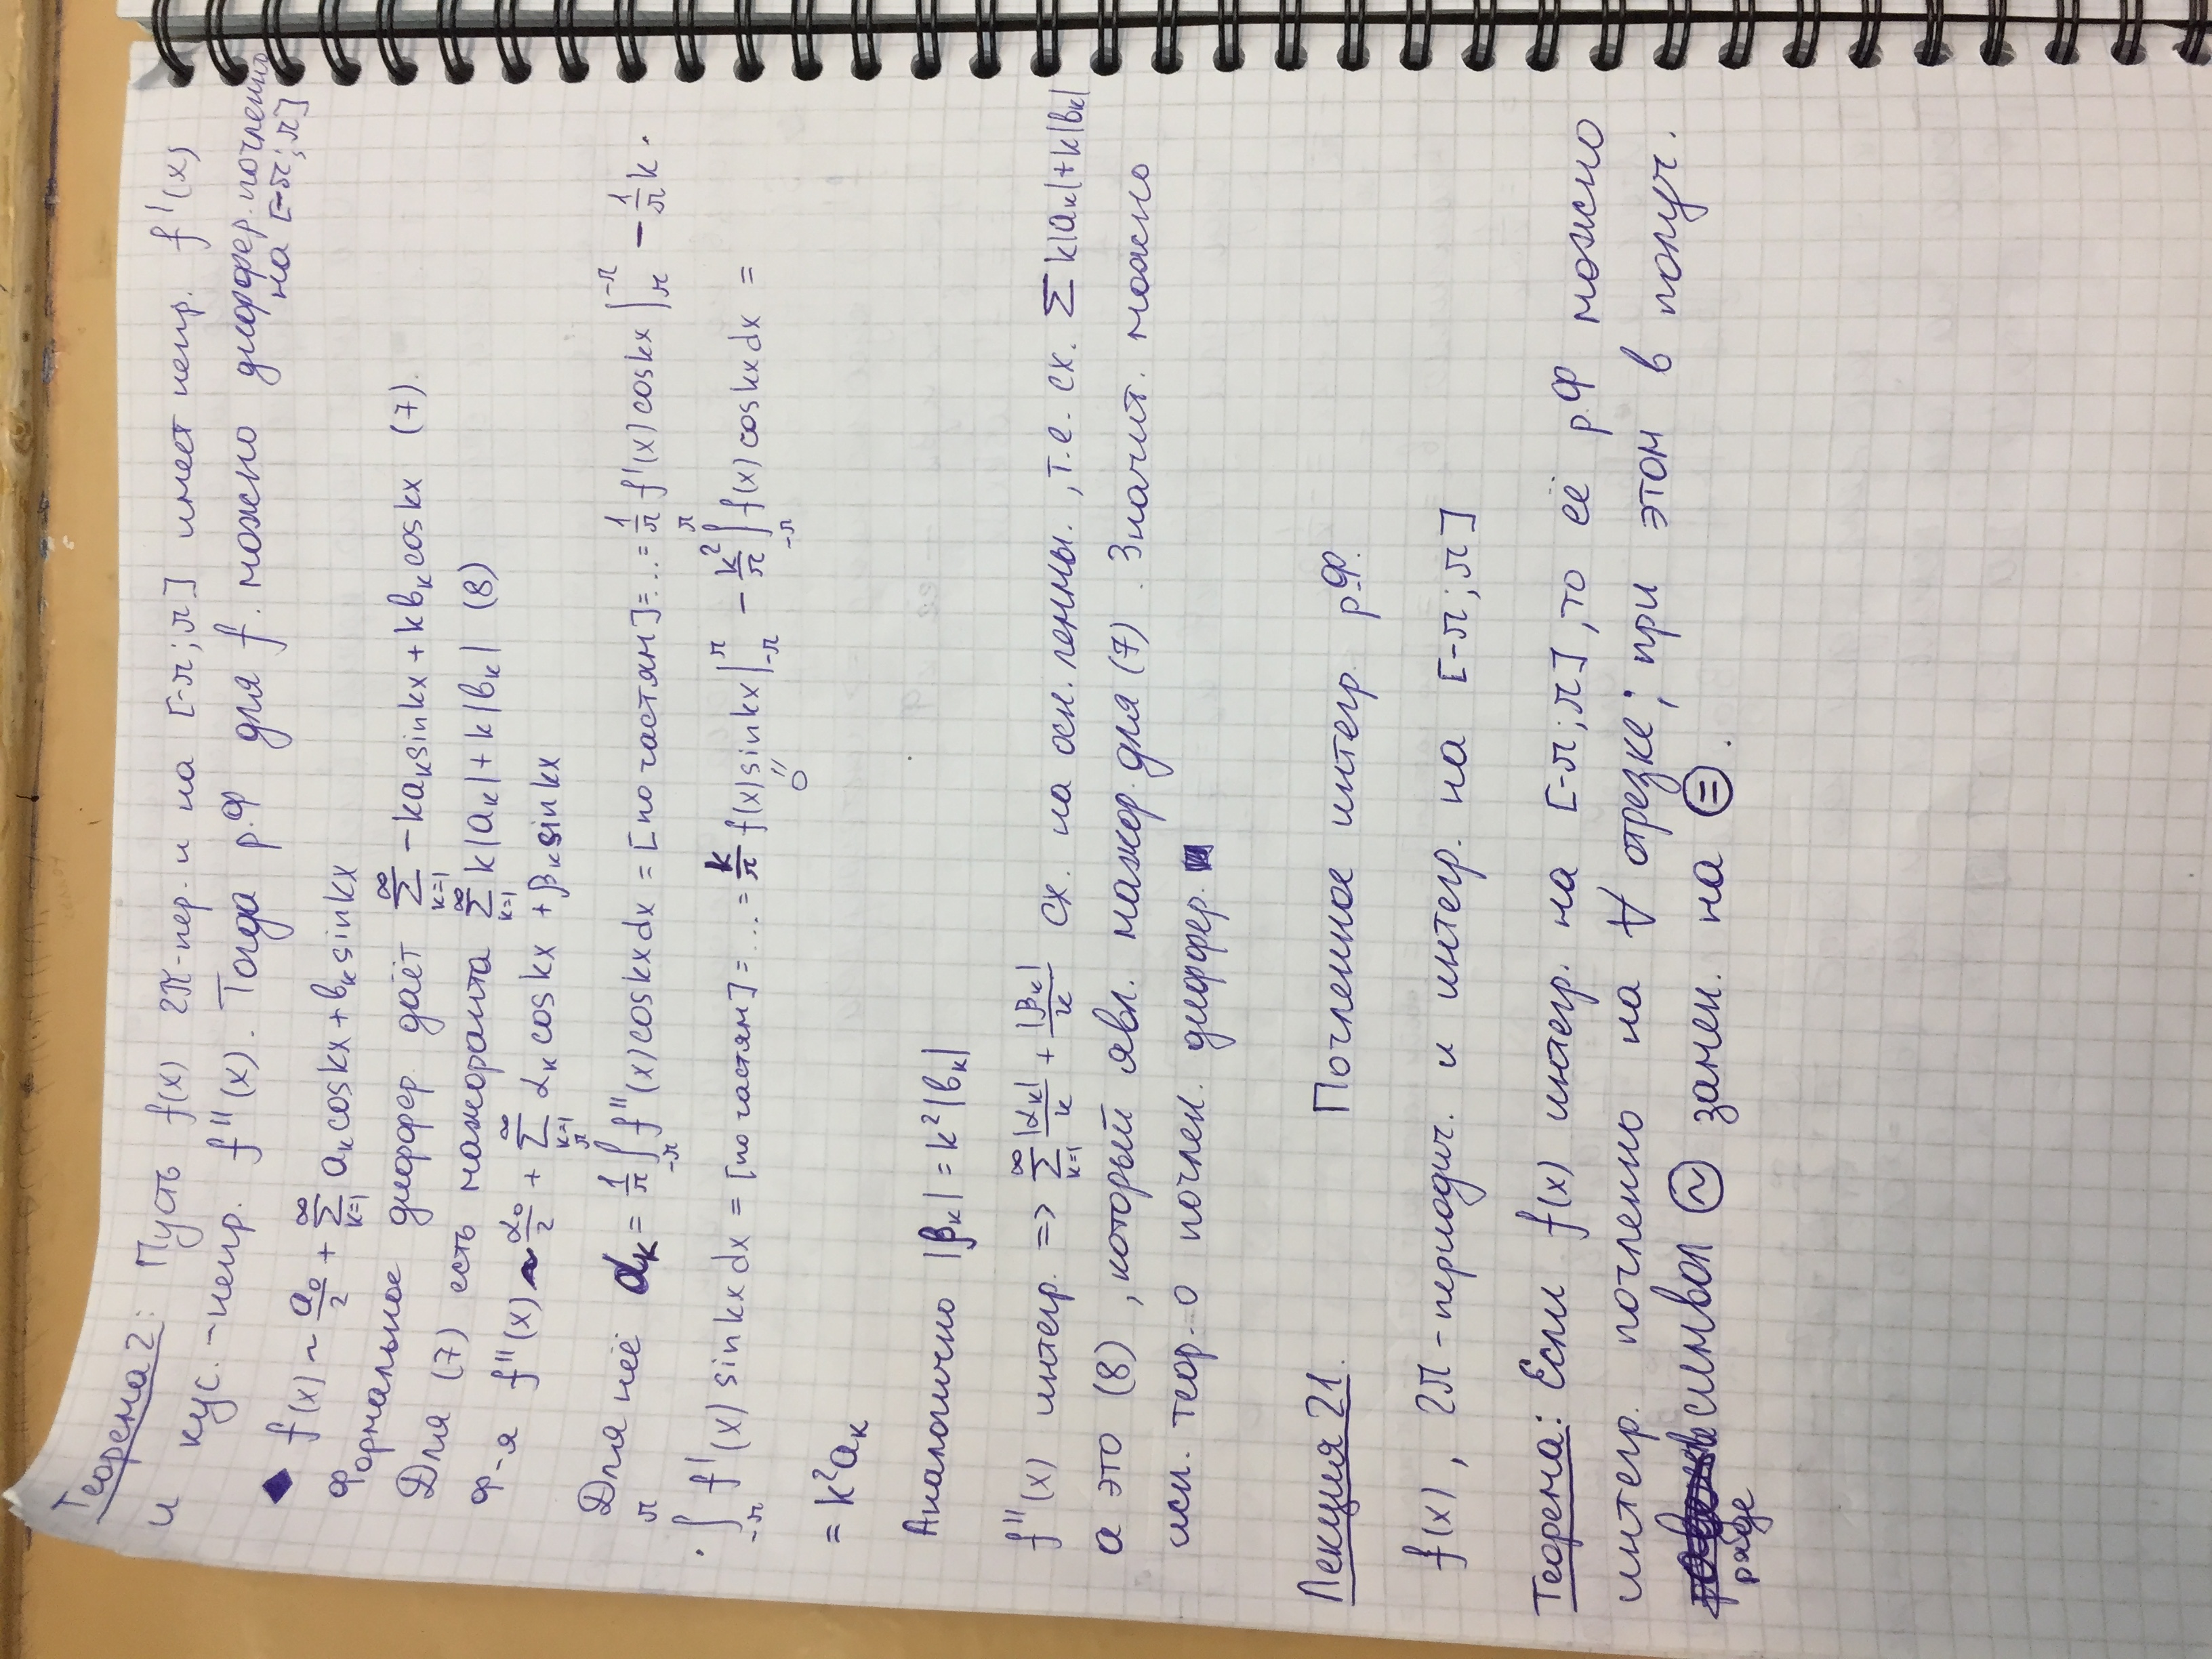 Теорема 2: Пусть f(x) 2π-пер. и на [-π; π] имеет непр. f'(x)
и кус.-непр. f''(x). Тогда р.Ф для f. можно диффер. почленно
на [-π; π]
◆ f(x) ~ a₀/2 + ∑_{k=1}^{∞} aₖcoskx + bₖsinkx
Формальное диффер. даёт ∑_{k=1}^{∞} -kaₖsinkx + kbₖcoskx (7).
Для (7) есть мажоранта ∑_{k=1}^{∞} k|aₖ| + k|bₖ| (8)
Ф-я f''(x) ~ α₀/2 + ∑_{k=1}^{∞} αₖcoskx + βₖsinkx
Для неё αₖ = 1/π ∫_{-π}^{π} f''(x)coskxdx = [по частям] = ... = 1/π f'(x)coskx |_{π}^{-π} - 1/π k ·
· ∫_{-π}^{π} f'(x)sinkxdx = [по частям] = ... = k/π f(x)sinkx |_{-π}^{π} - k²/π ∫_{-π}^{π} f(x)coskxdx =
"
0
= k²aₖ
Аналогично |βₖ| = k²|bₖ|
f''(x) интегр. => ∑_{k=1}^{∞} |αₖ|/k + |βₖ|/k сх. на осн. леммы., т.е. сх. ∑ k|aₖ| + k|bₖ|
а это (8), который явл. мажор. для (7). Значит. можно
исп. теор. о почлен. диффер. ■
Лекция 21. Почленное интегр. р.Ф.
f(x), 2π-периодич. и интегр. на [-π; π]
Теорема: Если f(x) интегр. на [-π; π], то её р.Ф можно
интегр. почленно на ∀ отрезке; при этом в получ.
символ ~ замен. на = .
ряде